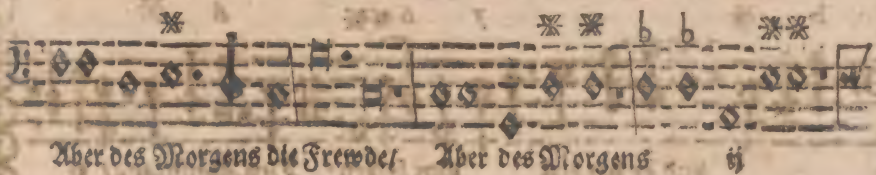 Aber des Morgens die Frewde/ Aber des Morgens ij